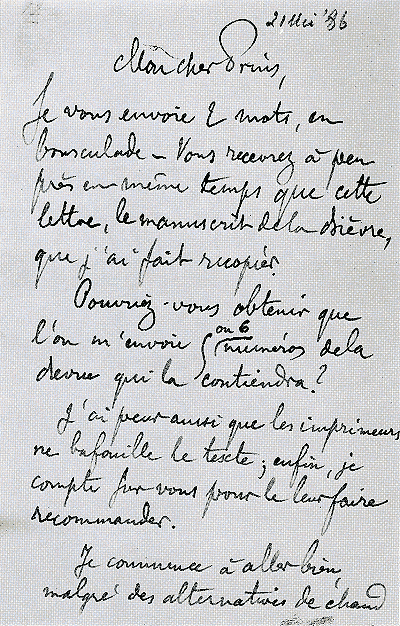 21 Mei '86
Mon cher Prins,
Je vous envoie 2 mots, en
bousculade – Vous recevrez à peu
près en même temps que cette
lettre, le manuscrit de la Bièvre,
que j'ai fait recopier.
Pourriez-vous obtenir que
l'on m'envoie 5 ou 6 numéros de la
revue qui la contiendra?
J'ai peur aussi que les imprimeurs
ne bafouille le texte; enfin, je
compte sur vous pour le leur faire
recommander.
Je commence à aller bien,
malgré des alternatives de chaud